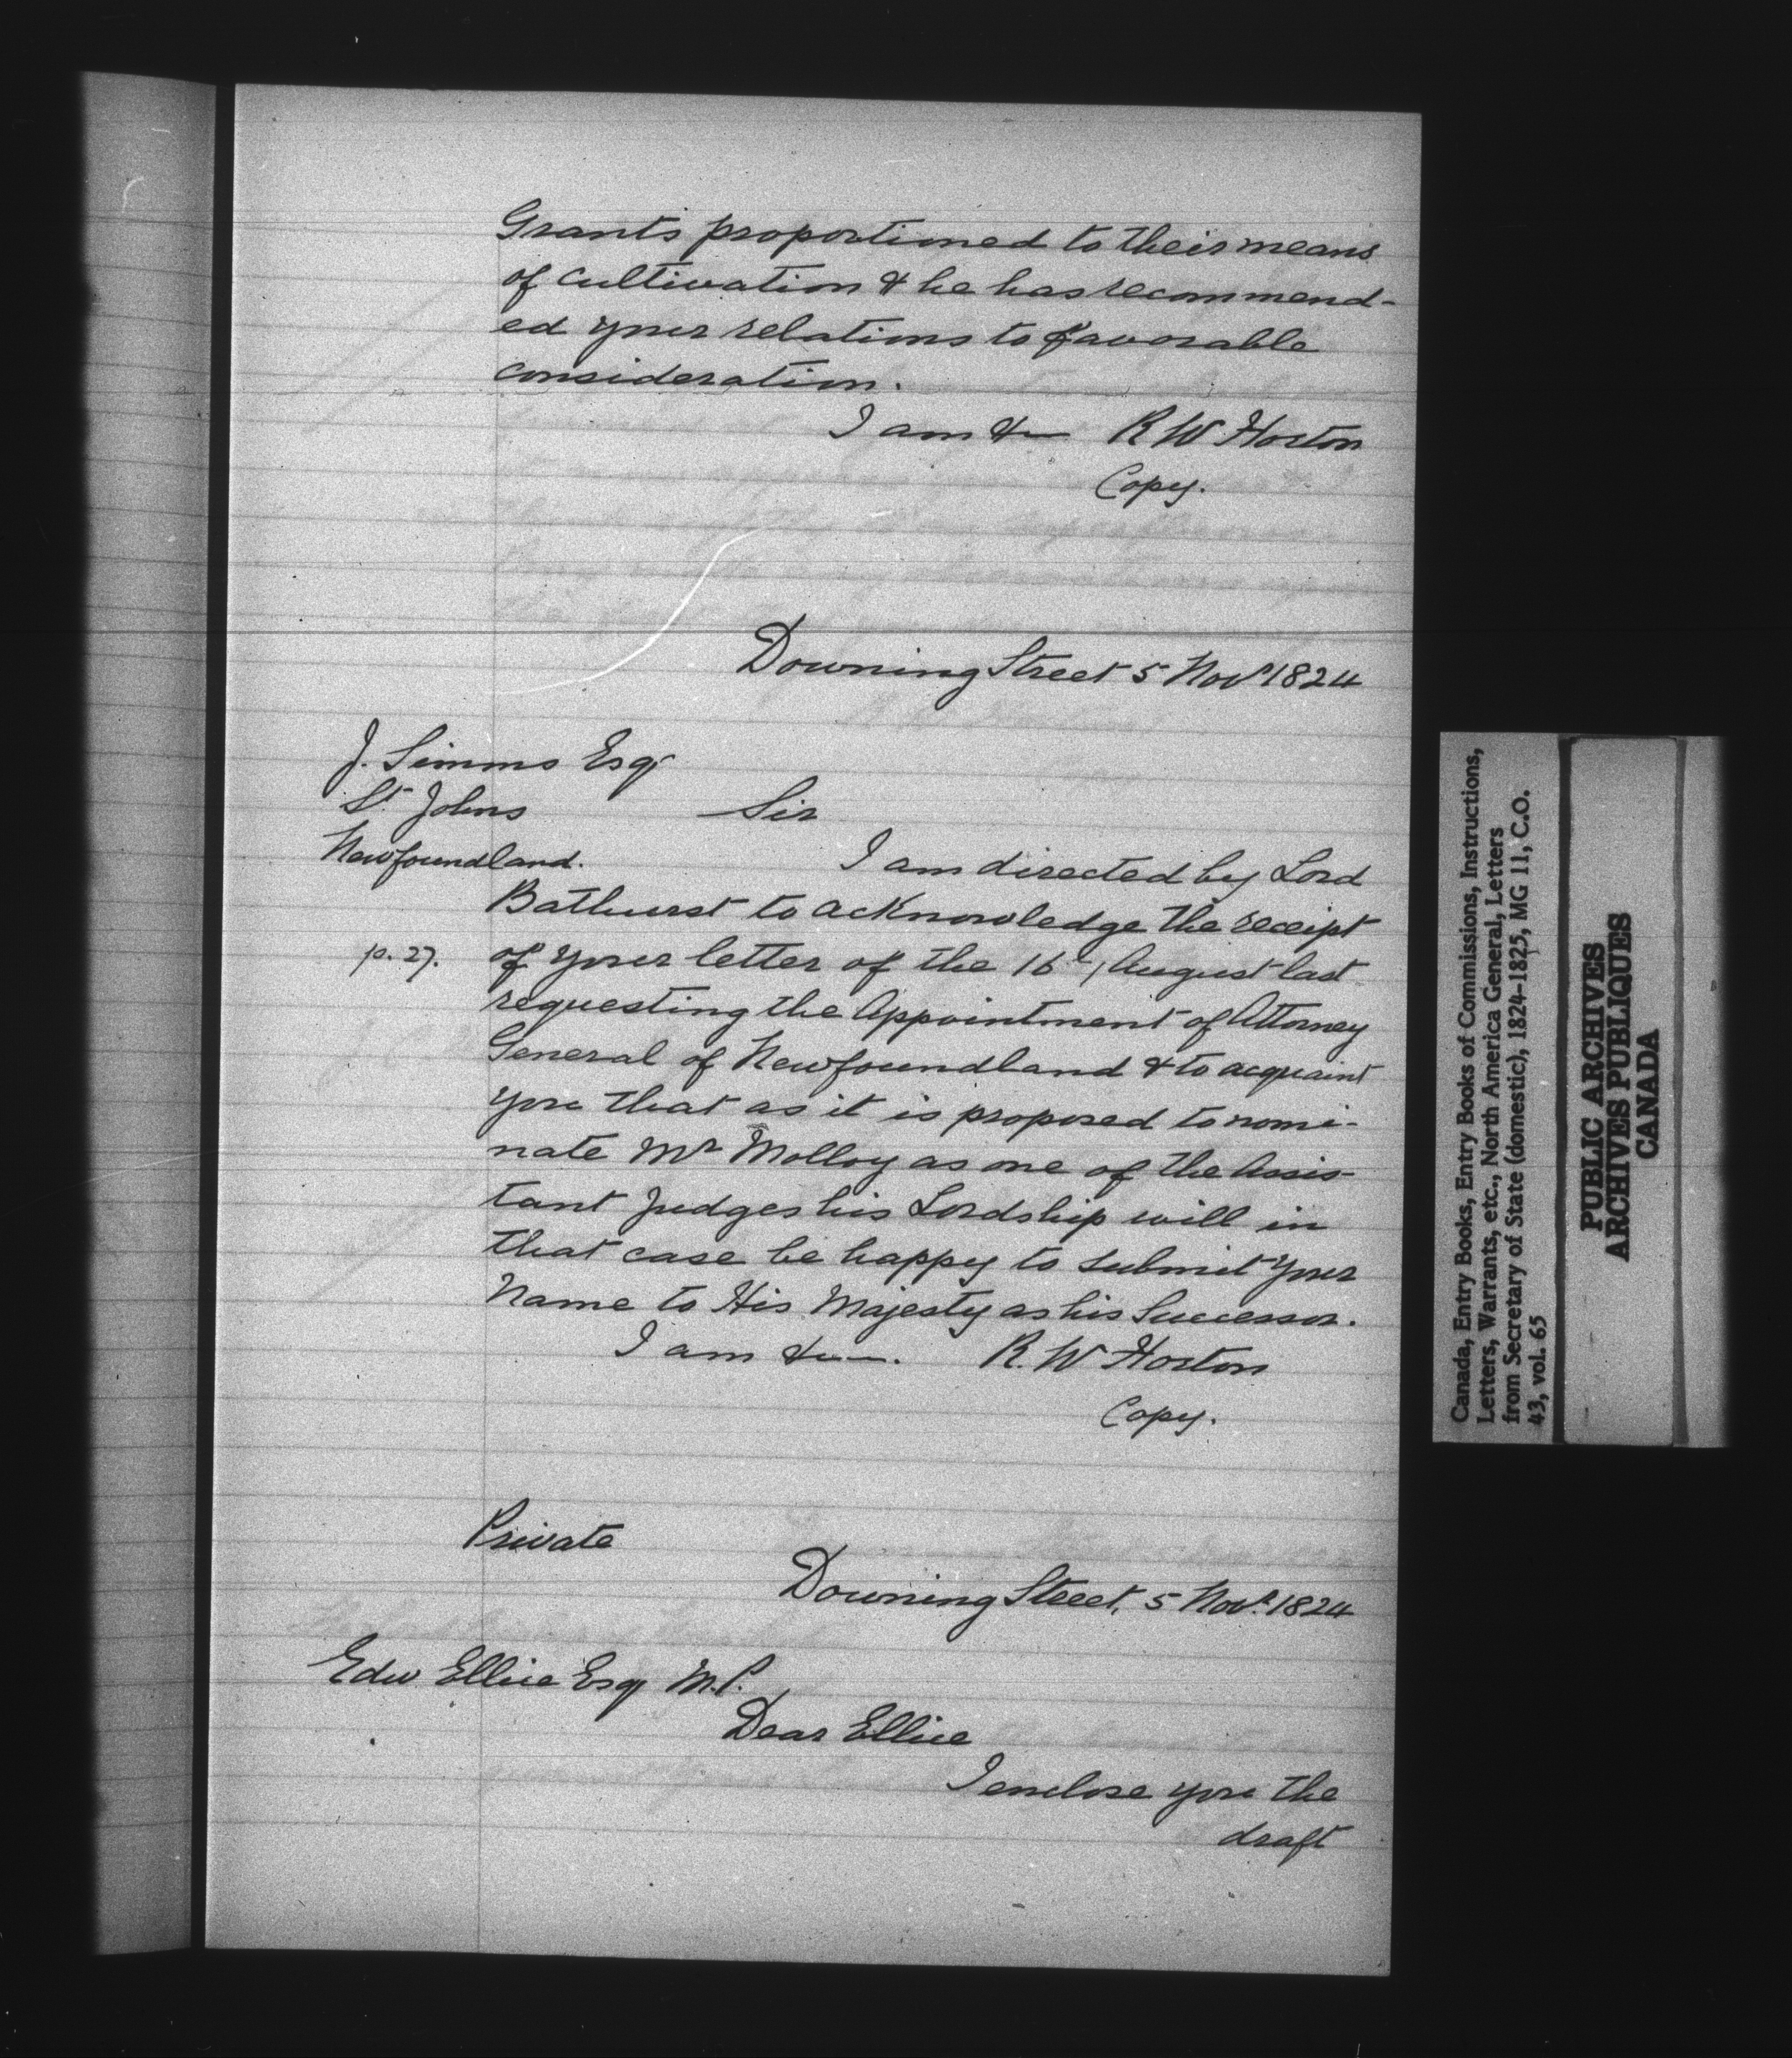 Grants proportioned to their means
of cultivation & he has recommend-
ed your relations to favorable
consideration.
I am &c R W Horton
Copy.
Downing Street 5 Novr 1824
J. Simms Esqr
St Johns
Newfoundland.
Sir
I am directed by Lord
Bathurst to acknowledge the receipt
p. 27.
of your letter of the 16th August last
requesting the Appointment of Attorney
General of Newfoundland & to acquaint
you that as it is proposed to nomi-
nate Mr Molloy as one of the Assis-
tant Judges his Lordship will in
that case be happy to submit your
Name to His Majesty as his Successor.
I am &c. R. W Horton
Copy.
Private
Downing Street, 5 Novr. 1824
Edw Ellice Esq M.P.
Dear Ellice
I enclose you the
draft
Canada, Entry Books, Entry Books of Commissions, Instructions,
Letters, Warrants, etc., North America General, Letters
from Secretary of State (domestic), 1824-1825, MG 11, C.O.
43, vol. 65
PUBLIC ARCHIVES
ARCHIVES PUBLIQUES
CANADA